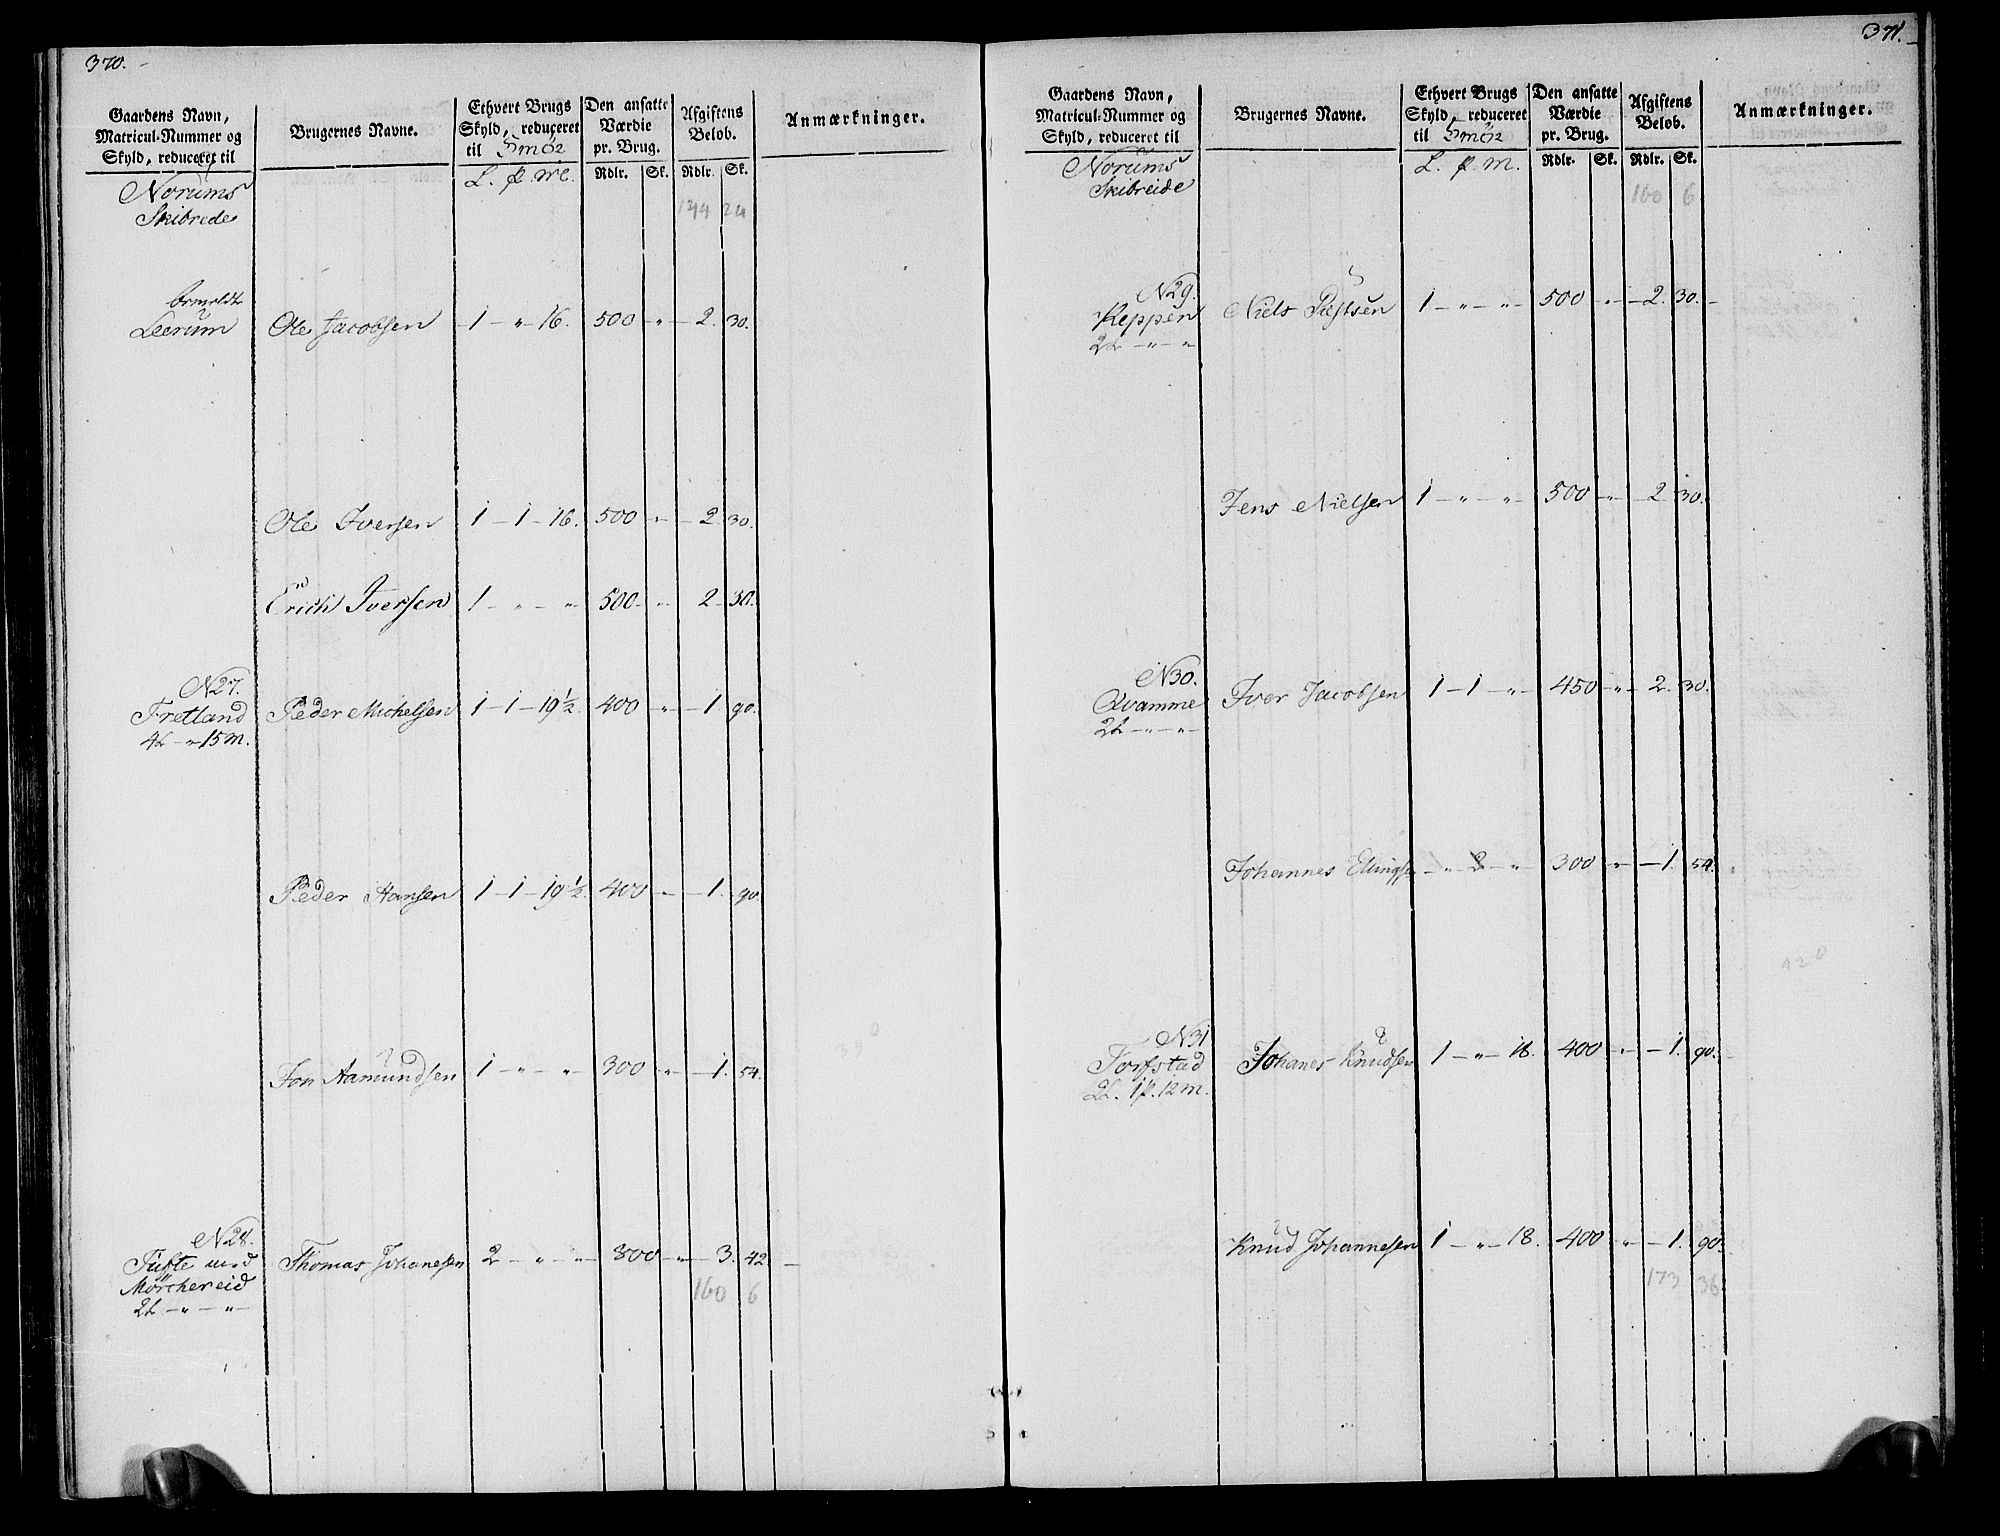 370.
Gaardens Navn, Matricul-Nummer og Skyld, reduceret til
Brugernes Navne.
Ethvert Brugs Skyld, reduceret til Smör
Den ansatte Værdie pr. Brug.
Afgiftens Beløb.
Anmærkninger.
L. p. m. Rdlr. Sk. Rdlr. Sk.
Norums
Skibrede
144 24
Leerum Ole Jacobsen 1 – " – 16. 500 " – 2. 30.
Ole Iversen 1 – 1 – 16. 500 " – 2. 30.
Erich Iversen 1 – " – " 500 – " 2 – 30.
N27.
Fretland Peder Michelsen 1 – 1 – 19 1/2. 400 " – 1. 90.
4L – " 15m.
Peder Hansen 1 – 1 – 19 1/2. 400 – " – 1. 90.
Jon Aamundsen 1 – " – " 300 " – 1. 54.
N28.
Tufte med Thomas Johanesen 2 – " – " 800 – " – 3. 42 –
Mörchereid
2L – " – " 160 6
371.
Gaardens Navn, Matricul-Nummer og Skyld, reduceret til
Brugernes Navne.
Ethvert Brugs Skyld, reduceret til Smör
Den ansatte Værdie pr. Brug.
Afgiftens Beløb.
Anmærkninger.
L. p. m. Rdlr. Sk. Rdlr. Sk.
Norums
Skibreide
160 6
N29.
Keppen Niels 1 – " – " 500 – " – 2. 30. –
2L – " – "
Jens Nielsen 1 – " – " 500 – " – 2. 30.
N30.
Qvamme Iver Jacobsen 1 – 1 – " 450 – " – 2. 30.
2L – " – "
Johannes – " 2 – " 300 – " – 1. 54.
N31
Torfstad Johanes Knudsen 1 – " – 18. 400 – " – 1. 90.
2L. 1p. 12m.
Knud Johannesen 1 – " – 18. 400 – " – 1. 90.
173 36